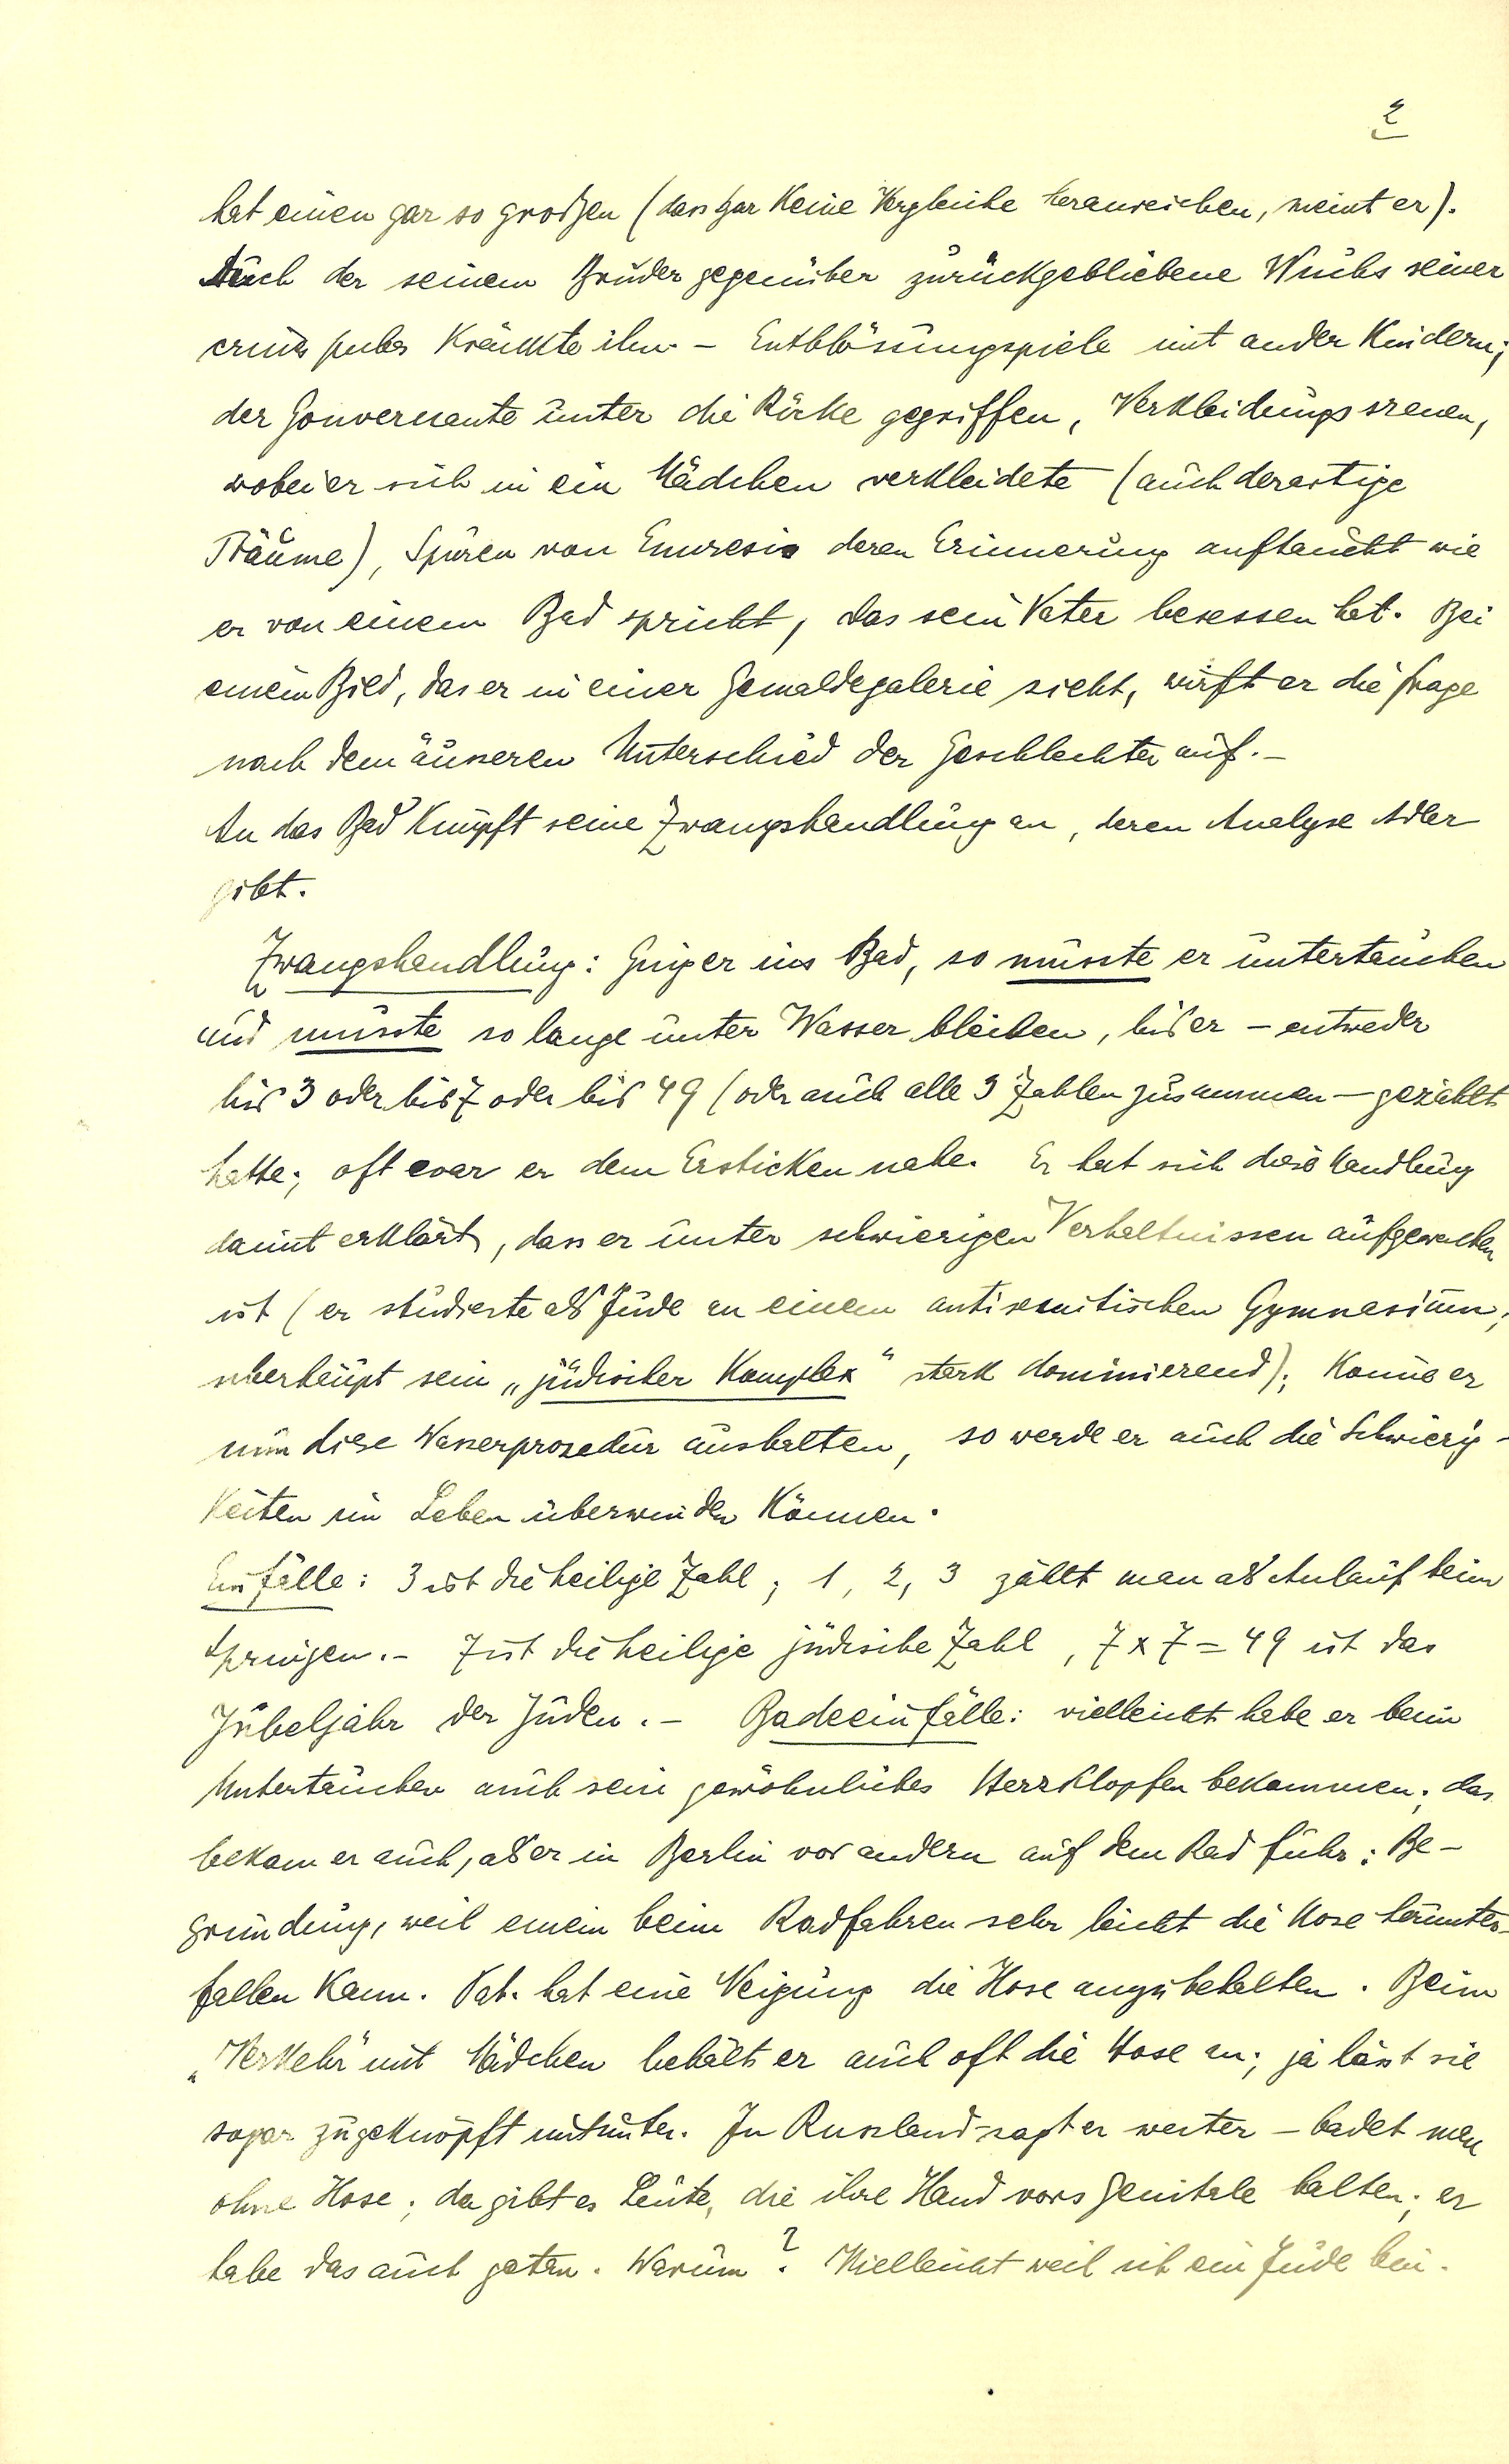 2
hat einen gar so großen (dass gar keine Vergleiche heranreichen, meint er).
Auch der seinem Bruder gegenüber zurückgebliebene Wuchs seiner
crines pubes kränkte ihn. – Entblösungspiele mit ander Kindern;
der Gouvernante unter die Röcke gegriffen, Verkleidungsszenen,
wobei er sich in ein Mädchen verkleidete (auch derartige
Träume), Spuren von Enuresis deren Erinnerung auftaucht wie
er von einem Bad spricht, das sein Vater besessen hat. Bei
einem Bild, das er in einer Gemaldegalerie sieht, wirft er die Frage
nach dem äusseren Unterschied der Geschlechter auf. –
An das Bad knüpft seine Zwangshandlung an, deren Analyse Adler
gibt.
Zwangshandlung: Ging er ins Bad, so musste er untertauchen
und musste so lange unter Wasser bleiben, bis er – entweder
bis 3 oder bis 7 oder bis 49 (oder auch alle 3 Zahlen zusammen – gezählt
hatte; oft war er dem Ersticken nahe. Er hat sich diese Handlung
damit erklärt, dass er unter schwierigen Verhältnissen aufgewachsen
ist (er studierte als Jude an einem antisemitischen Gymnasium;
überhaupt sein „jüdischer Komplex“ stark dominierend); Könne er
nun diese Wasserprozedur aushalten, so werde er auch die Schwierig-
keiten im Leben überwinden können.
Einfälle: 3 ist die heilige Zahl; 1, 2, 3 zählt man als Anlauf beim
Springen. – 7 ist die heilige jüdische Zahl, 7 x 7 = 49 ist das
Jubeljahr der Juden. – Badeeinfälle: vielleicht habe er beim
Untertauchen auch sein gewöhnliches Herzklopfen bekommen; das
bekam er auch, als er in Berlin vor andern auf dem Rad fuhr: Be-
gründung, weil einem beim Radfahren sehr leicht die Hose herunter-
fallen kann. Pat. hat eine Neigung die Hose anzubehalten. Beim
„Verkehr“ mit Mädchen behält er auch oft die Hose an; ja lässt sie
sogar zugeknöpft mitunter. In Russland – sagt er weiter – badet man
ohne Hose; da gibt es Leute, die ihre Hand vors Genitale halten; er
habe das auch getan. Warum? Vielleicht weil ich ein Jude bin.